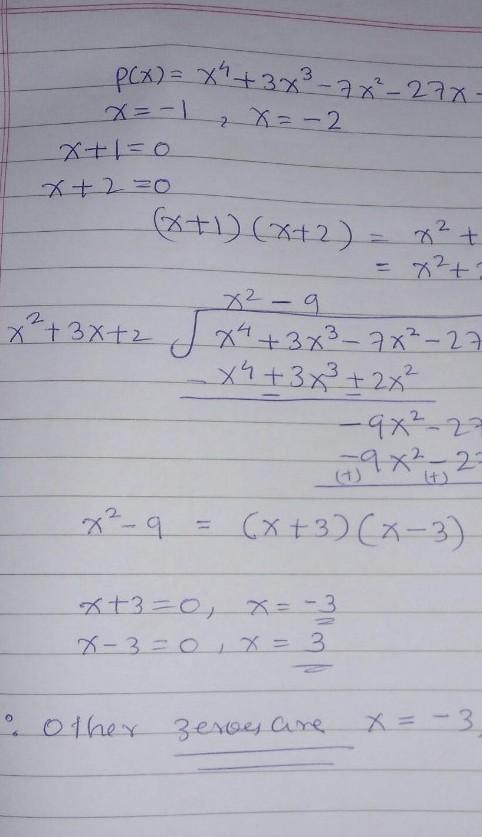 p(x) = x⁴ + 3x³ - 7x² - 27x -
x = -1 , x = -2
x + 1 = 0
x + 2 = 0
(x+1) (x+2) = x² +
= x² +
x² - 9
x² + 3x + 2 √ x⁴ + 3x³ - 7x² - 27
- x⁴ + 3x³ + 2x²
-9x² - 27
-9x² - 2
(+) (+)
x² - 9 = (x+3) (x-3)
x + 3 = 0, x = -3
x - 3 = 0, x = 3
∴ Other zeroes are x = -3,